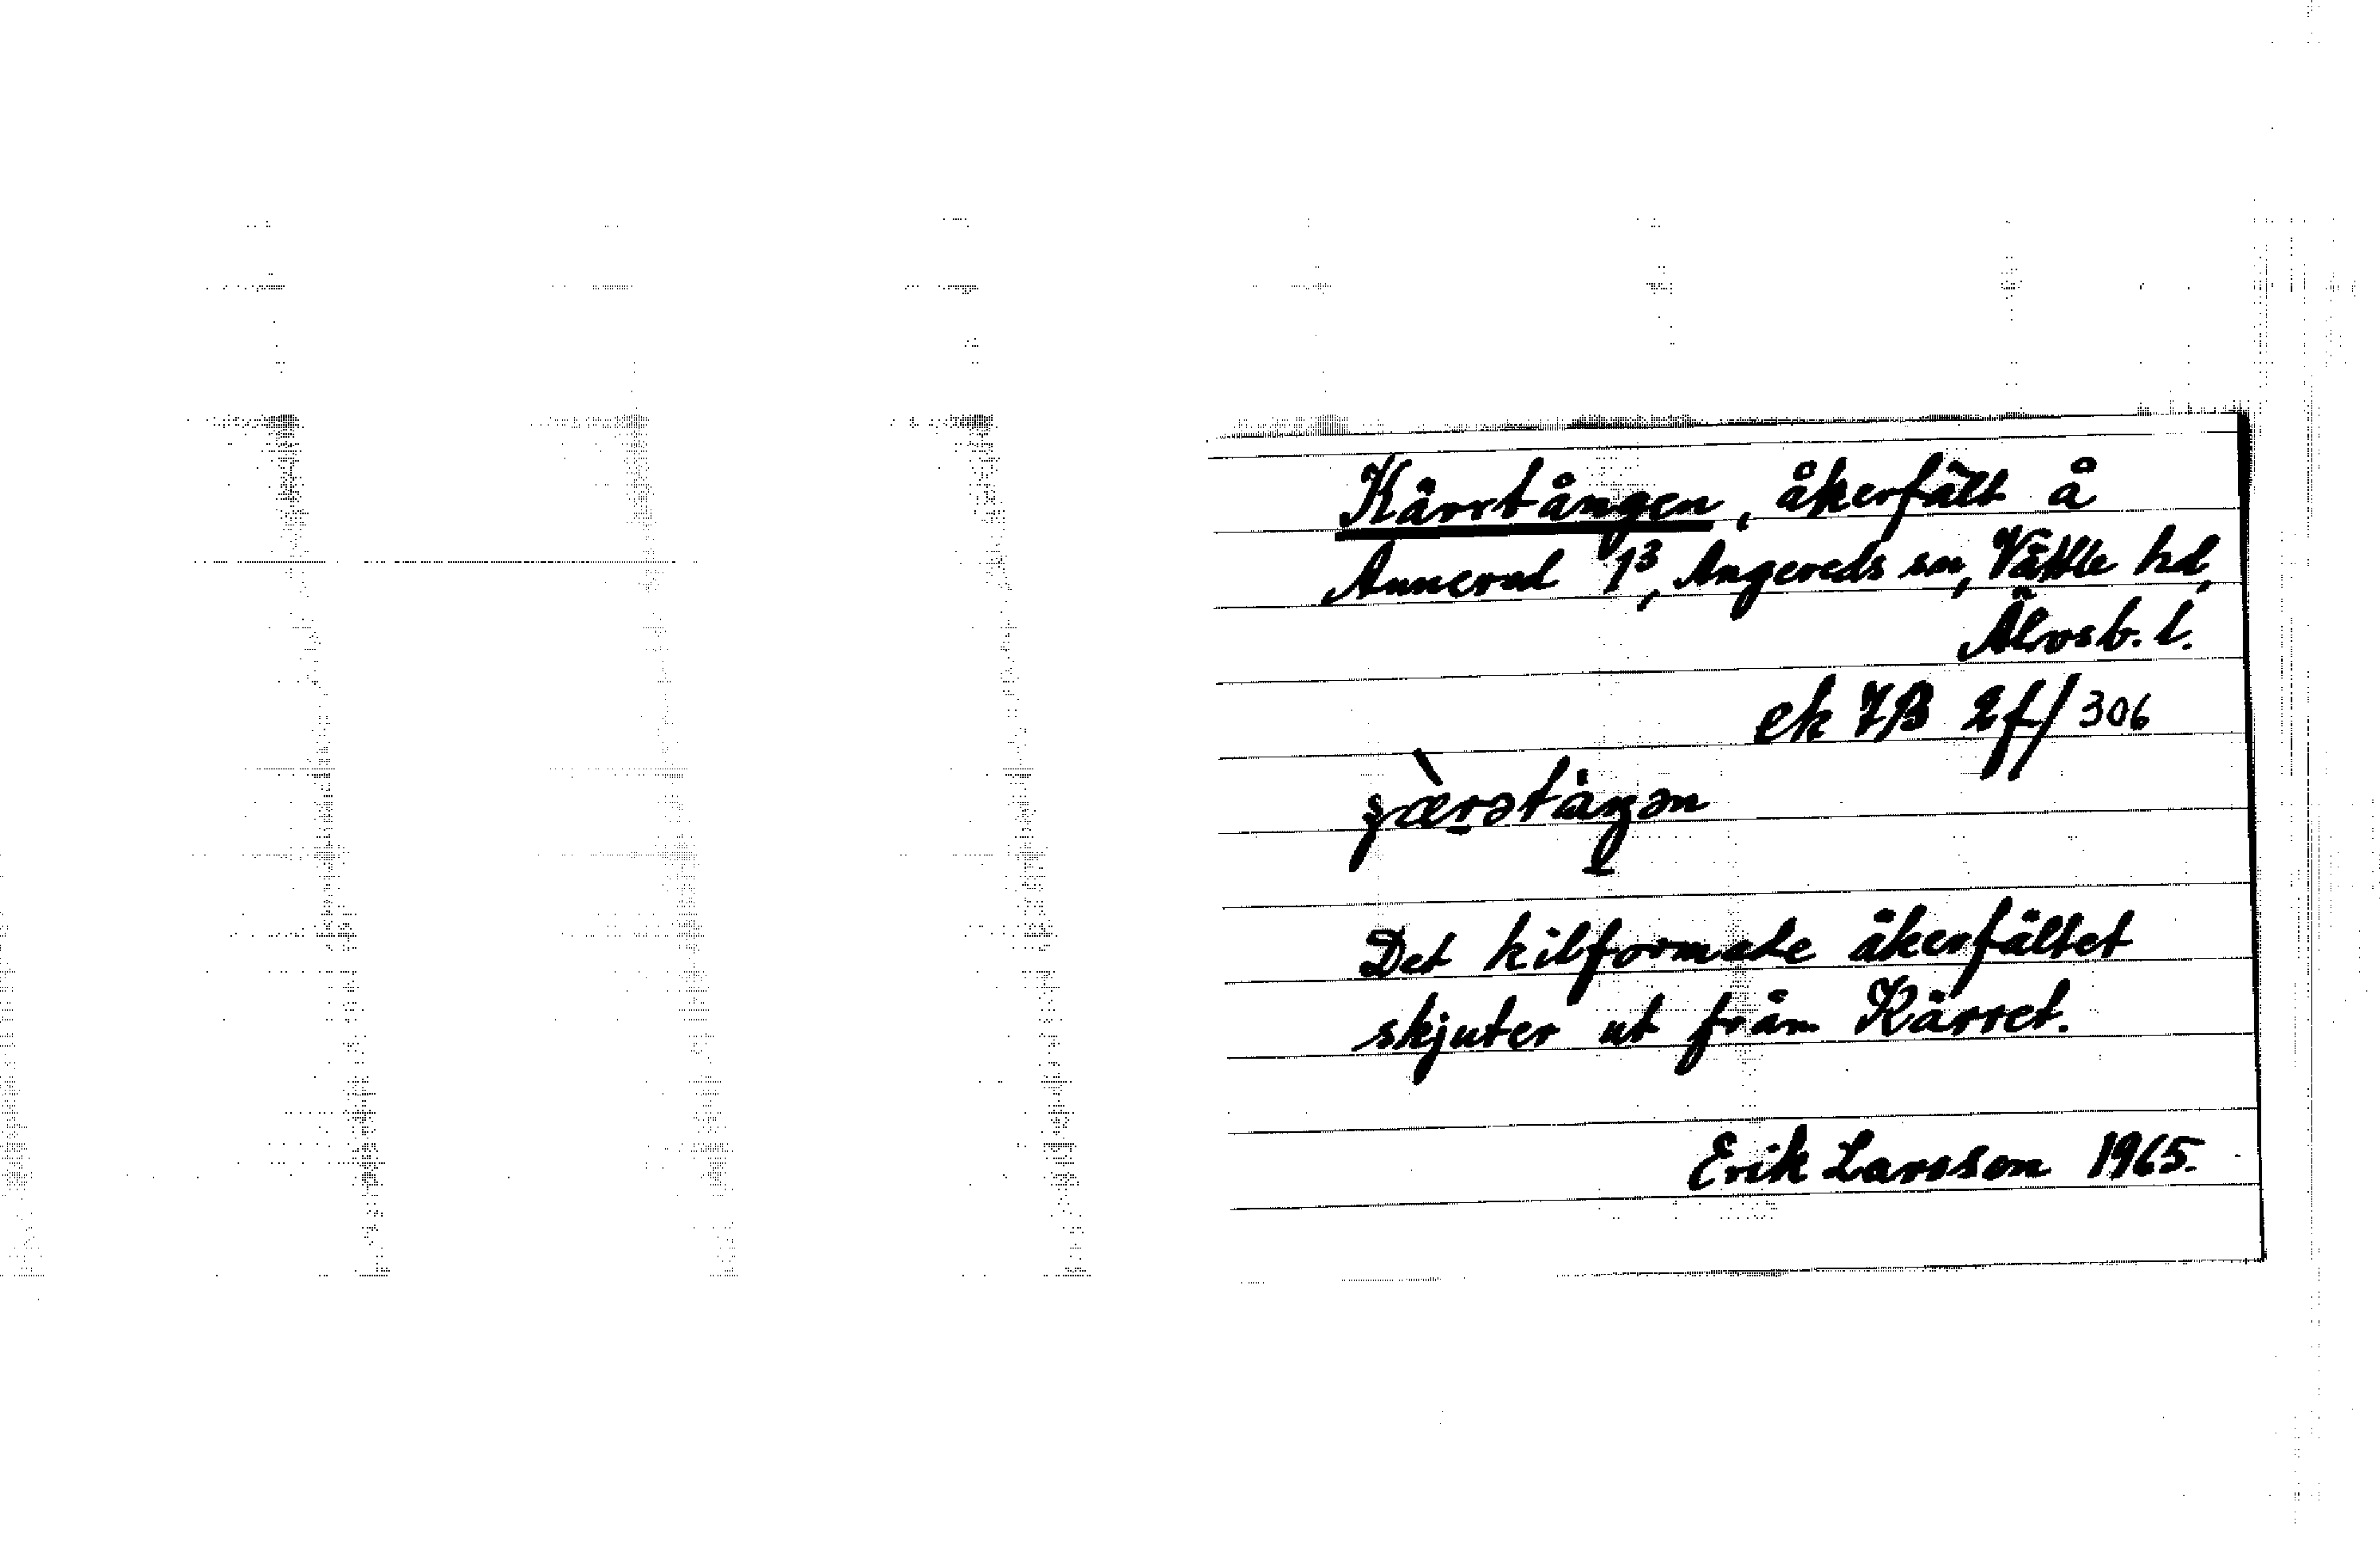 Kärrtången, åkerfält å
Annered 1³, Angereds sn, Vättle hd,
Älvsb. l.
ek 7B 2f/306
Det kilformade åkerfältet
skjuter ut från Kärret.
Erik Larsson 1965.